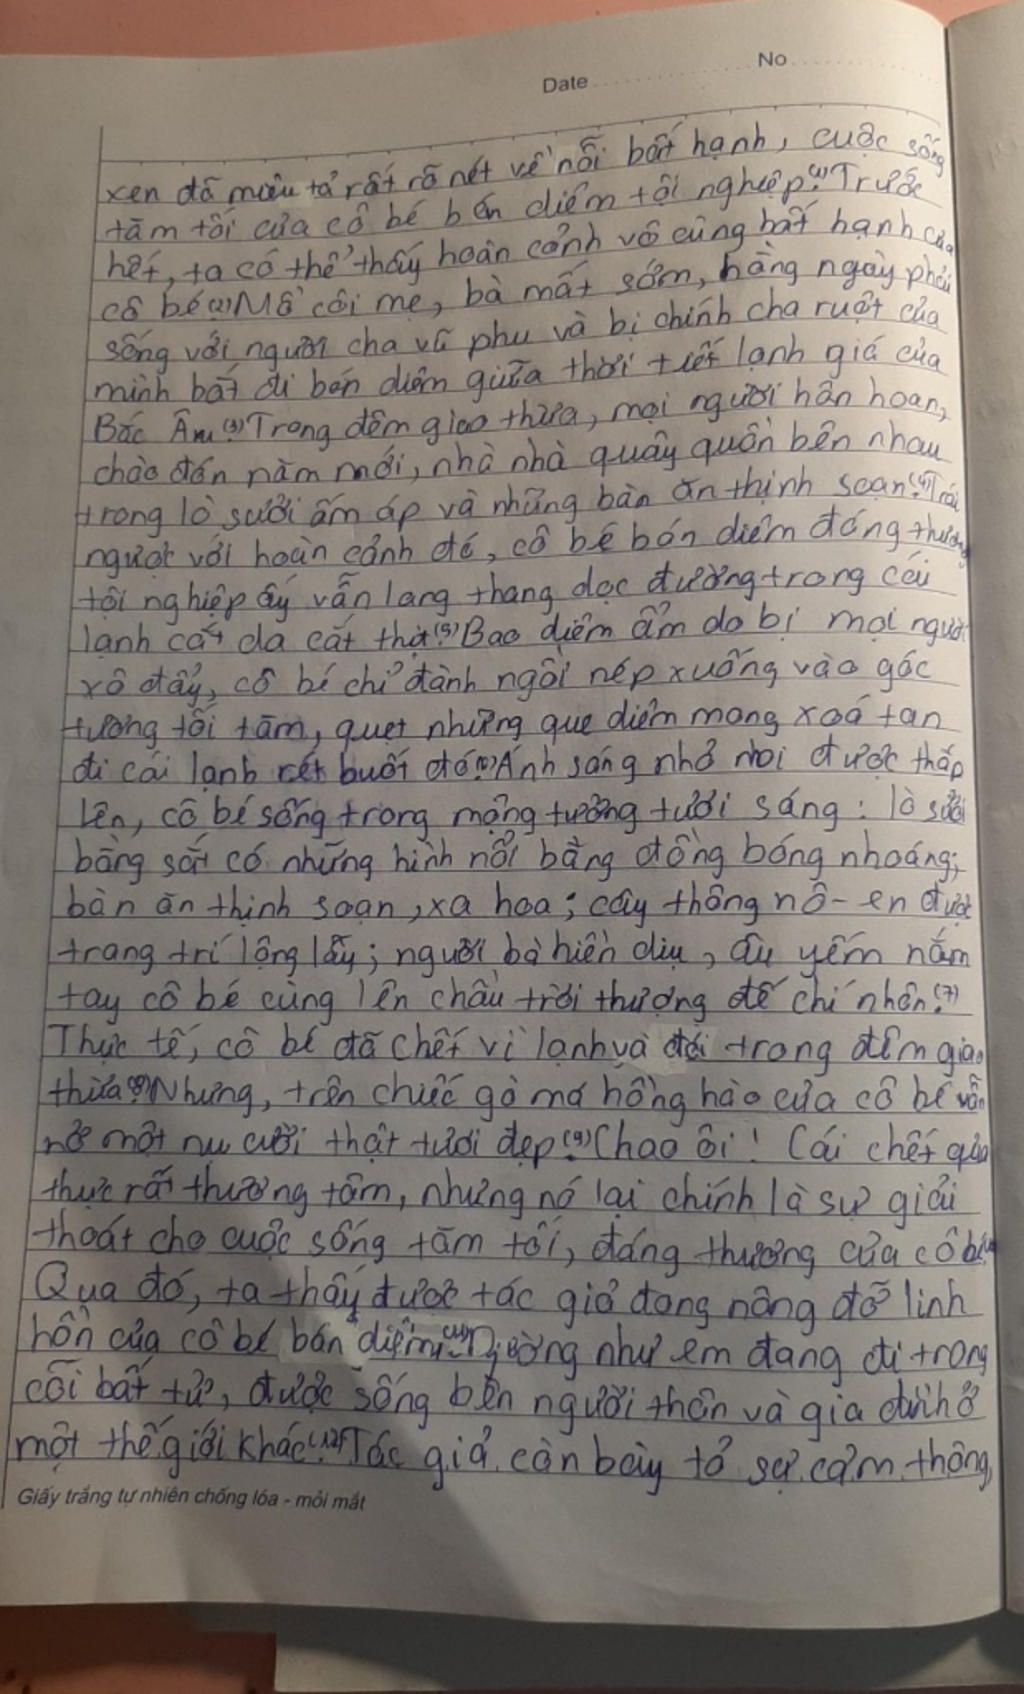 Date No
xen đã miêu tả rất rõ nét về nỗi bất hạnh, cuộc sống
tăm tối của cô bé bán diêm tội nghiệp.(1) Trước
hết, ta có thể thấy hoàn cảnh vô cùng bất hạnh của
cô bé.(2) Mồ côi mẹ, bà mất sớm, hằng ngày phải
sống với người cha vũ phu và bị chính cha ruột của
mình bắt đi bán diêm giữa thời tiết lạnh giá của
Bắc Âu.(3) Trong đêm giao thừa, mọi người hân hoan,
chào đón năm mới, nhà nhà quây quần bên nhau
trong lò sưởi ấm áp và những bàn ăn thịnh soạn.(4) Trái
ngược với hoàn cảnh đó, cô bé bán diêm đáng thương
tội nghiệp ấy vẫn lang thang dọc đường trong cái
lạnh cắt da cắt thịt.(5) Bao diêm ẩm do bị mọi người
xô đẩy, cô bé chỉ đành ngồi nép xuống vào góc
tường tối tăm, quẹt những que diêm mong xoá tan
đi cái lạnh rét buốt đó.(6) Ánh sáng nhỏ nhoi được thắp
lên, cô bé sống trong mộng tưởng tươi sáng: lò sưởi
bằng sắt có những hình nổi bằng đồng bóng nhoáng;
bàn ăn thịnh soạn, xa hoa; cây thông nô-en được
trang trí lộng lẫy; người bà hiền dịu, âu yếm nắm
tay cô bé cùng lên chầu trời thượng đế chí nhân.(7)
Thực tế, cô bé đã chết vì lạnh và đói trong đêm giao
thừa.(8) Nhưng, trên chiếc gò má hồng hào của cô bé vẫn
nở một nụ cười thật tươi đẹp.(9) Chao ôi! Cái chết quả
thực rất thương tâm, nhưng nó lại chính là sự giải
thoát cho cuộc sống tăm tối, đáng thương của cô bé.
Qua đó, ta thấy được tác giả đang nâng đỡ linh
hồn của cô bé bán diêm.(11) Dường như em đang đi trong
cõi bất tử, được sống bên người thân và gia đình ở
một thế giới khác.(12) Tác giả còn bày tỏ sự cảm thông,
Giấy trắng tự nhiên chống lóa - mỏi mắt